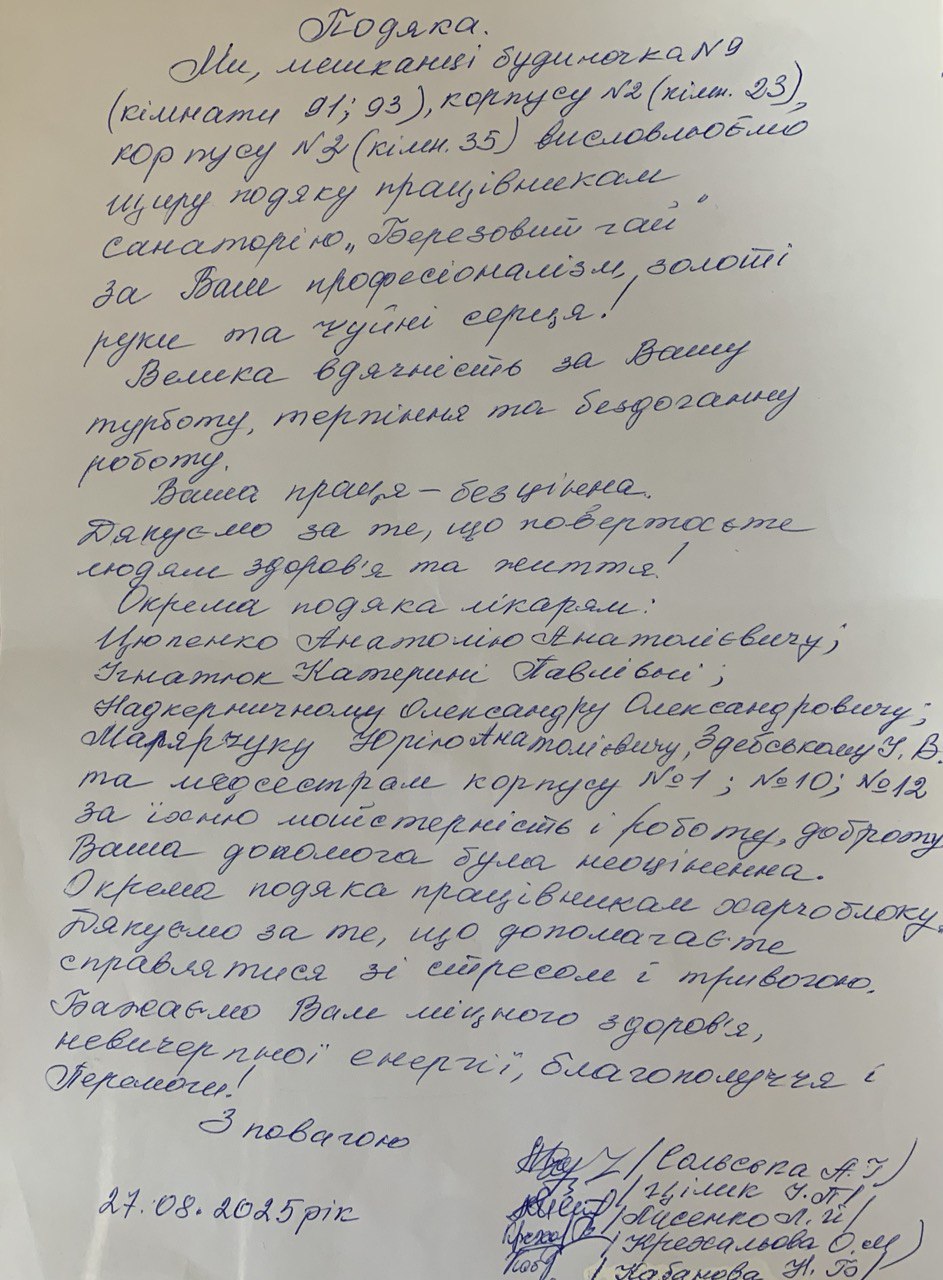 Подяка.
Ми, мешканці будиночка №9
(кімнати 91; 93), корпусу №2 (кімн. 23),
корпусу №3 (кімн. 35) висловлюємо
щиру подяку працівникам
санаторію „Березовий гай"
за Ваш професіоналізм, золоті
руки та чуйні серця!
Велика вдячність за Вашу
турботу, терпіння та бездоганну
роботу.
Ваша праця – безцінна.
Дякуємо за те, що повертаєте
людям здоров'я та життя!
Окрема подяка лікарям:
Цюпенко Анатолію Анатолієвичу;
Ігнатюк Катерині Павлівні;
Надкерничному Олександру Олександровичу;
Марярчуку Юрію Анатолієвичу, Здебському І. В.
та медсестрам корпусу №1; №10; №12
за їхню майстерність і роботу, доброту
Ваша допомога була неоціненна.
Окрема подяка працівникам харчоблоку.
Дякуємо за те, що допомагаєте
справлятися зі стресом і тривогою.
Бажаємо Вам міцного здоров'я,
невичерпної енергії, благополуччя і
Перемоги!
З повагою
/Сольська А. І/
/Цілик І. П/
/Лисенко Л. Й/
27.08.2025 рік
/Крежальова О. М/
/Кабанова Н. Б/